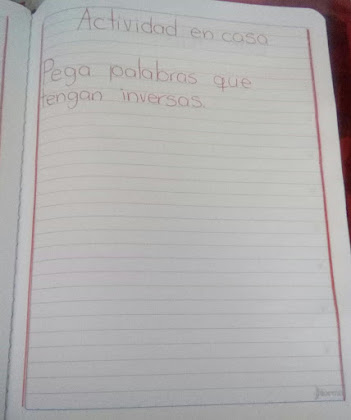 Actividad en casa
Pega palabras que
tengan inversas.
Norma